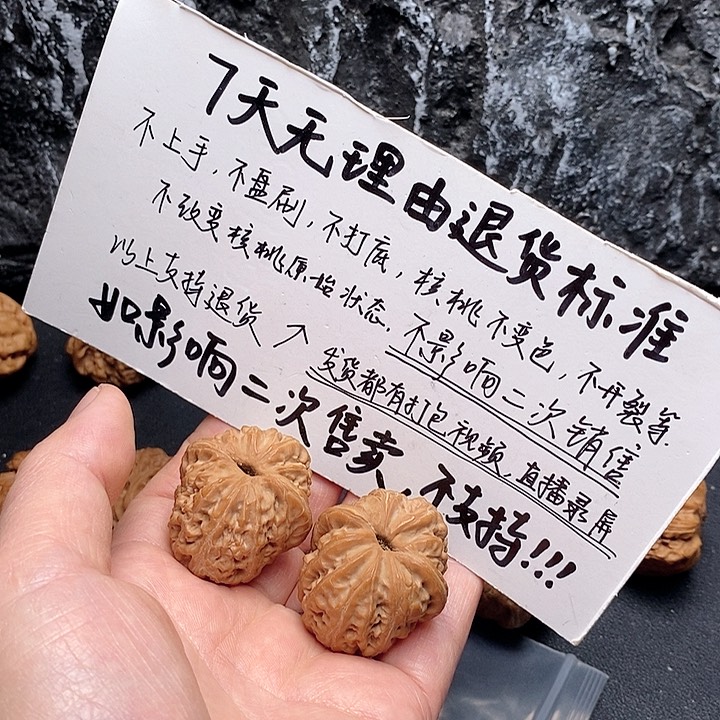 7天无理由退货标准
不上手,不盘刷,不打底,核桃不变色,不开裂等
不改变核桃原始状态.不影响二次销售
以上支持退货↗发货都有打包视频,直播录屏
如影响二次售卖,不支持!!!